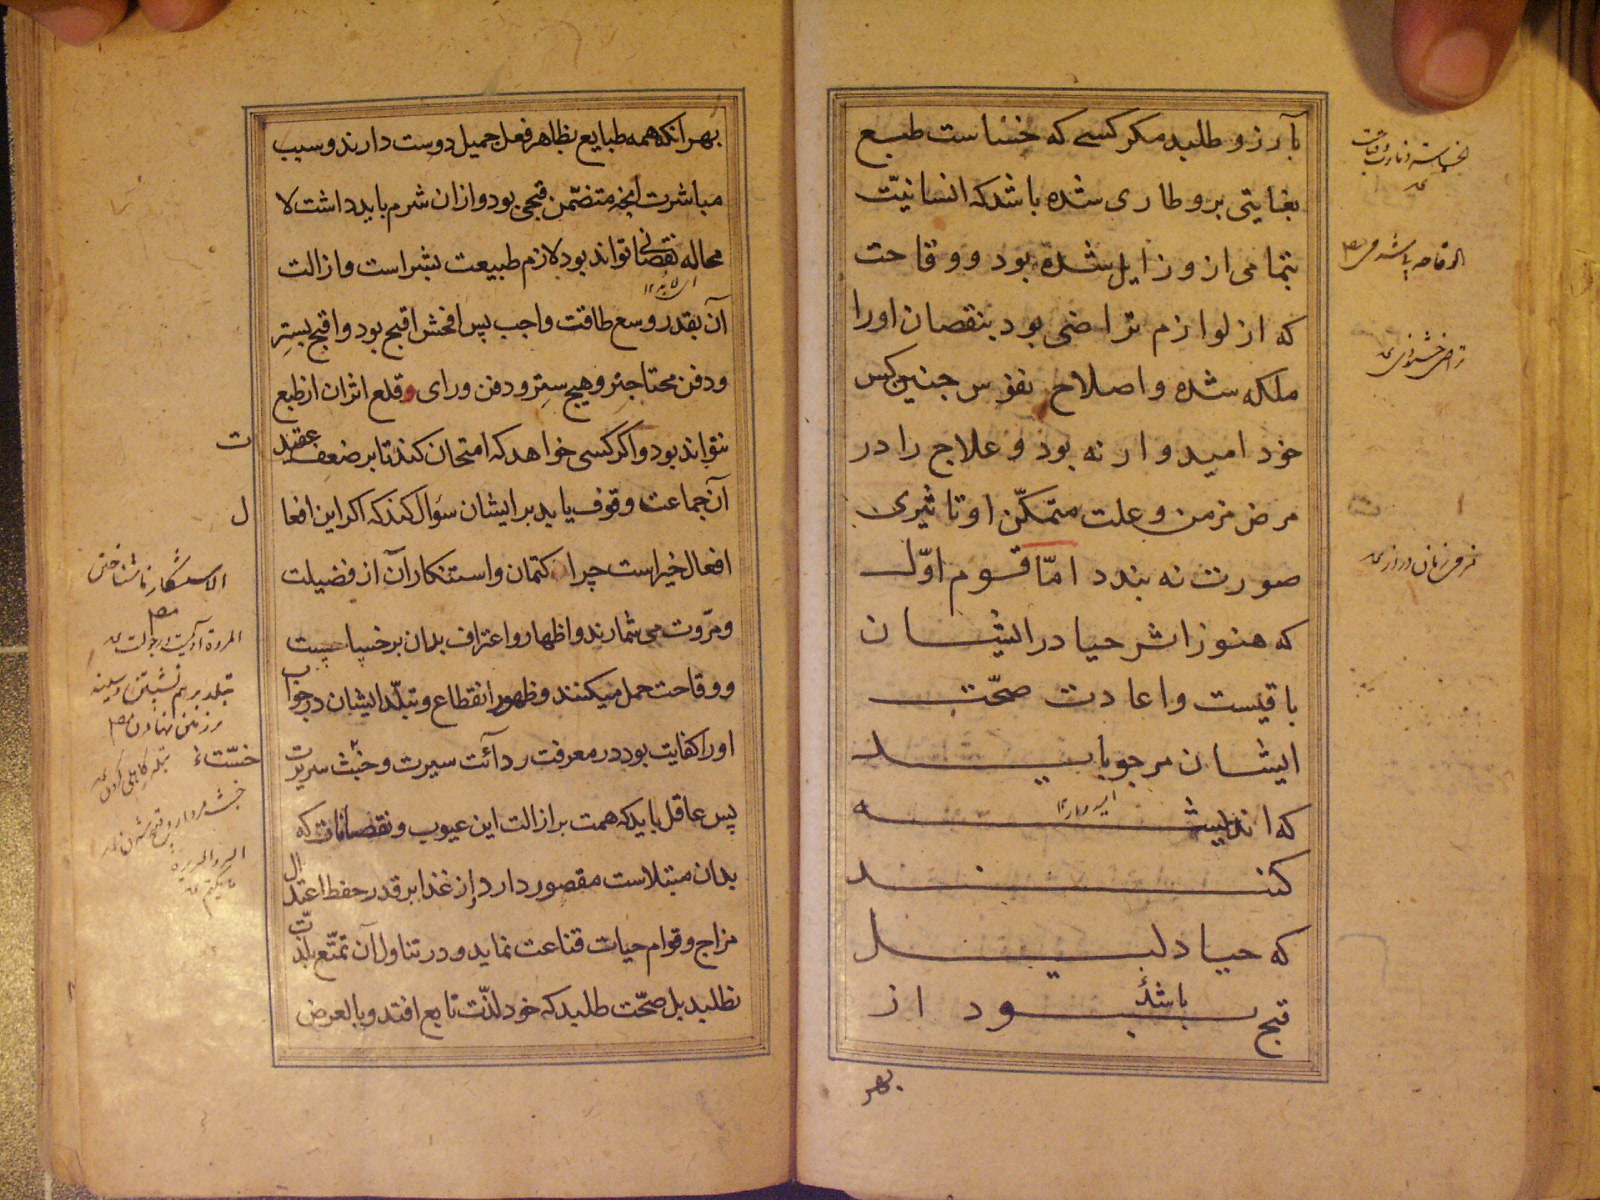 بآرزو طلبد مکر کسی که خساست طبع
بغایتی برو طاری شده باشد که انسانیّت
بتمامی ازو زایل شده بود و وقاحت
که از لوازم تراضی بود بنقصان اورا
ملکه شده و اصلاح نفوس جنین کس
خود امیدوار نه بود و علاج را در
مرض مزمن و علت متمکّن او تاثیری
صورت نه بندد امّا قوم اوّل
که هنوز اثر حیا در ایشان
باقیست و اعادت صحّت
ایشان مرجو باید
که اندیشه
کنند
که حیا دلیل
باشد
قبح بود از
بهر
بهر آنکه همه طبایع بظاهر فعل جمیل دوست دارند و سبب
مباشرت انچه متضمّن قبحی بود و ازان شرم باید داشت لا
محاله نقصانی تواند بود لازم طبیعت بشر است و ازالت
آن بقدر وسع طاقت واجب پس افحش اقبح بود و اقبح بستر
و دفن محتاجتر و هیچ ستر و دفن ورای و قلع اثر ان از طبع
نتواند بود و اکر کسی خواهد که امتحان کند تا بر ضعف عقیدت
آن جماعت وقوف یابد بر ایشان سؤال کند که اکر این افعال
افعال خیر است چرا کتمان و استنکار آن از فضیلت
و مرّوت می شمارند و اظهار و اعتراف بدان بر خساست
و وقاحت حمل میکنند و ظهور انقطاع و تبلّد ایشان در جواب
اورا کفایت بود در معرفت ردائت سیرت و خبث سریرت
پس عاقل باید که همت بر ازالت این عیوب و نقصانات که
بدان مبتلاست مقصور دارد و از غذا بر قدر حفظ اعتدال
مزاج و قوام حیات قناعت نماید و در تناول آن تمتّع بلذّت
نطلبد بل صحّت طلبد که خود لذّت تابع افتد و بالعرض
الاستنکار ناشناختن